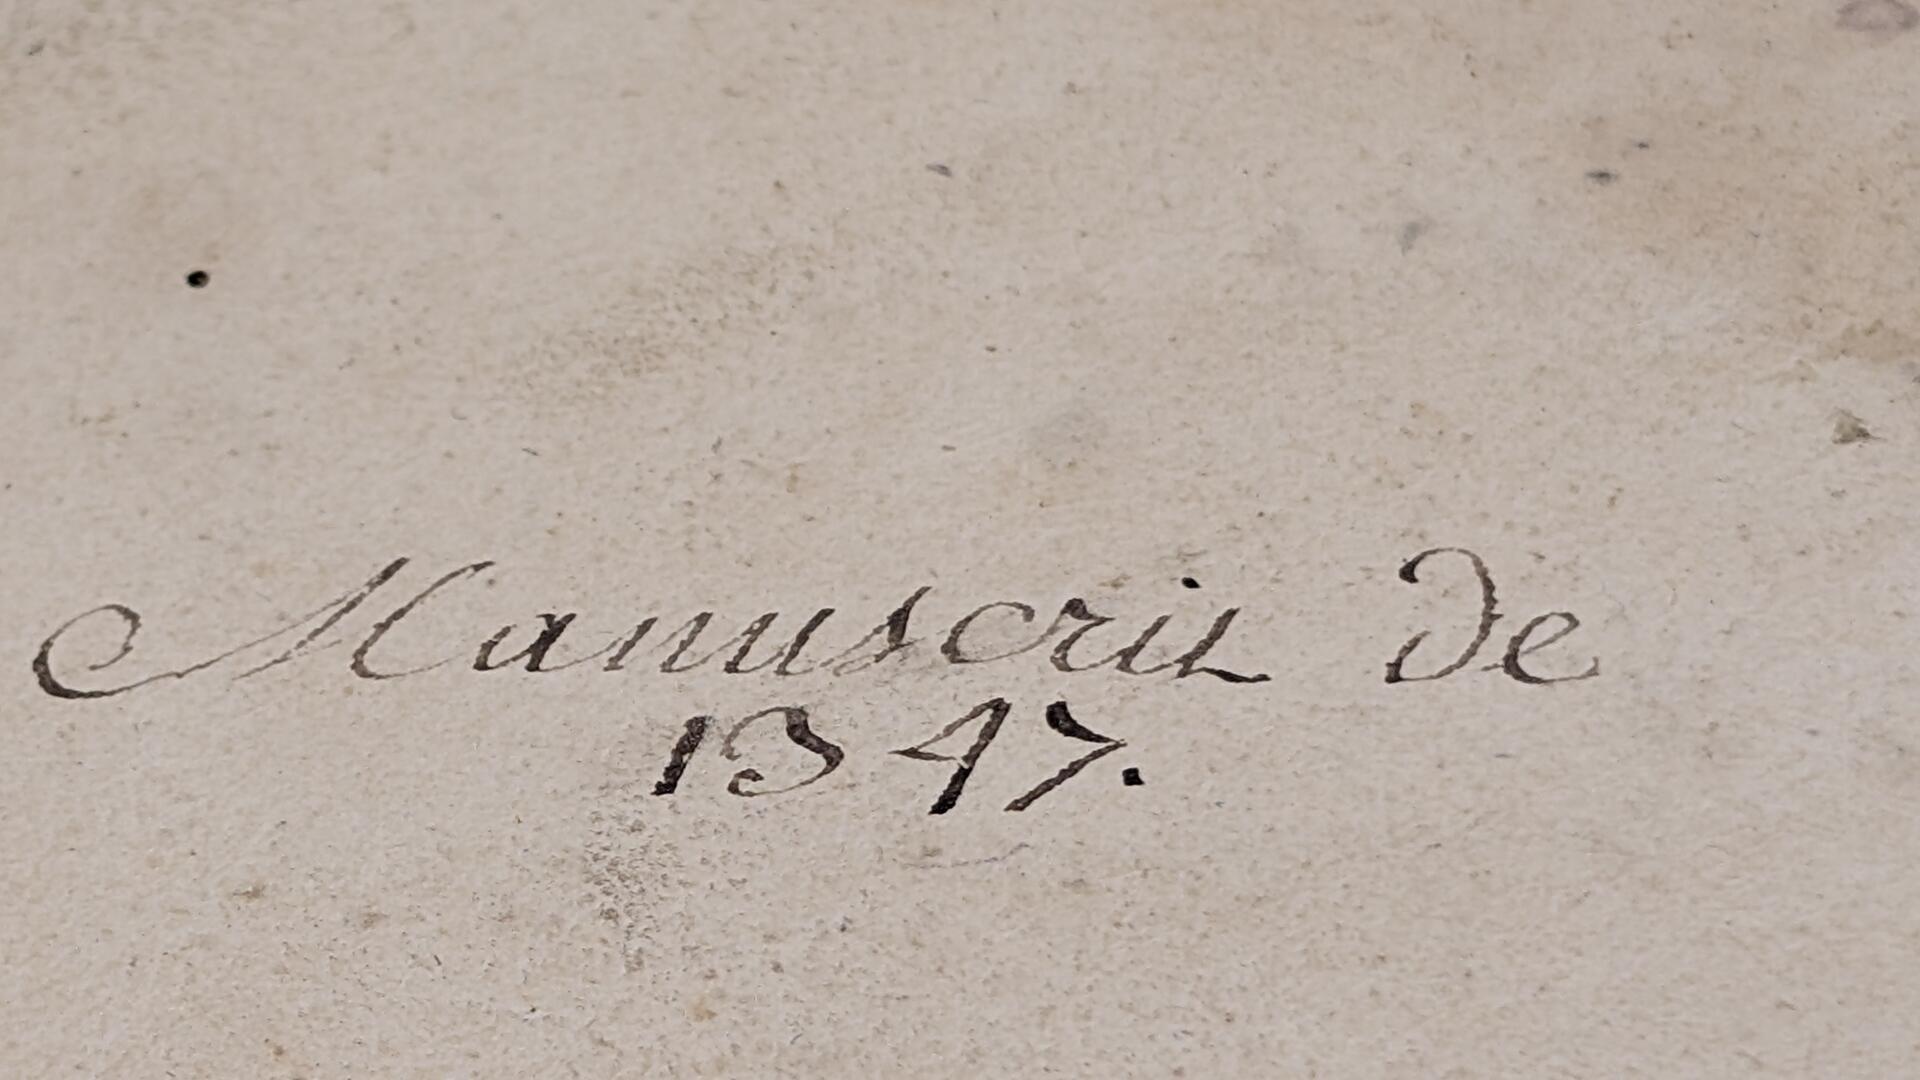 Manuscrit de
1347.